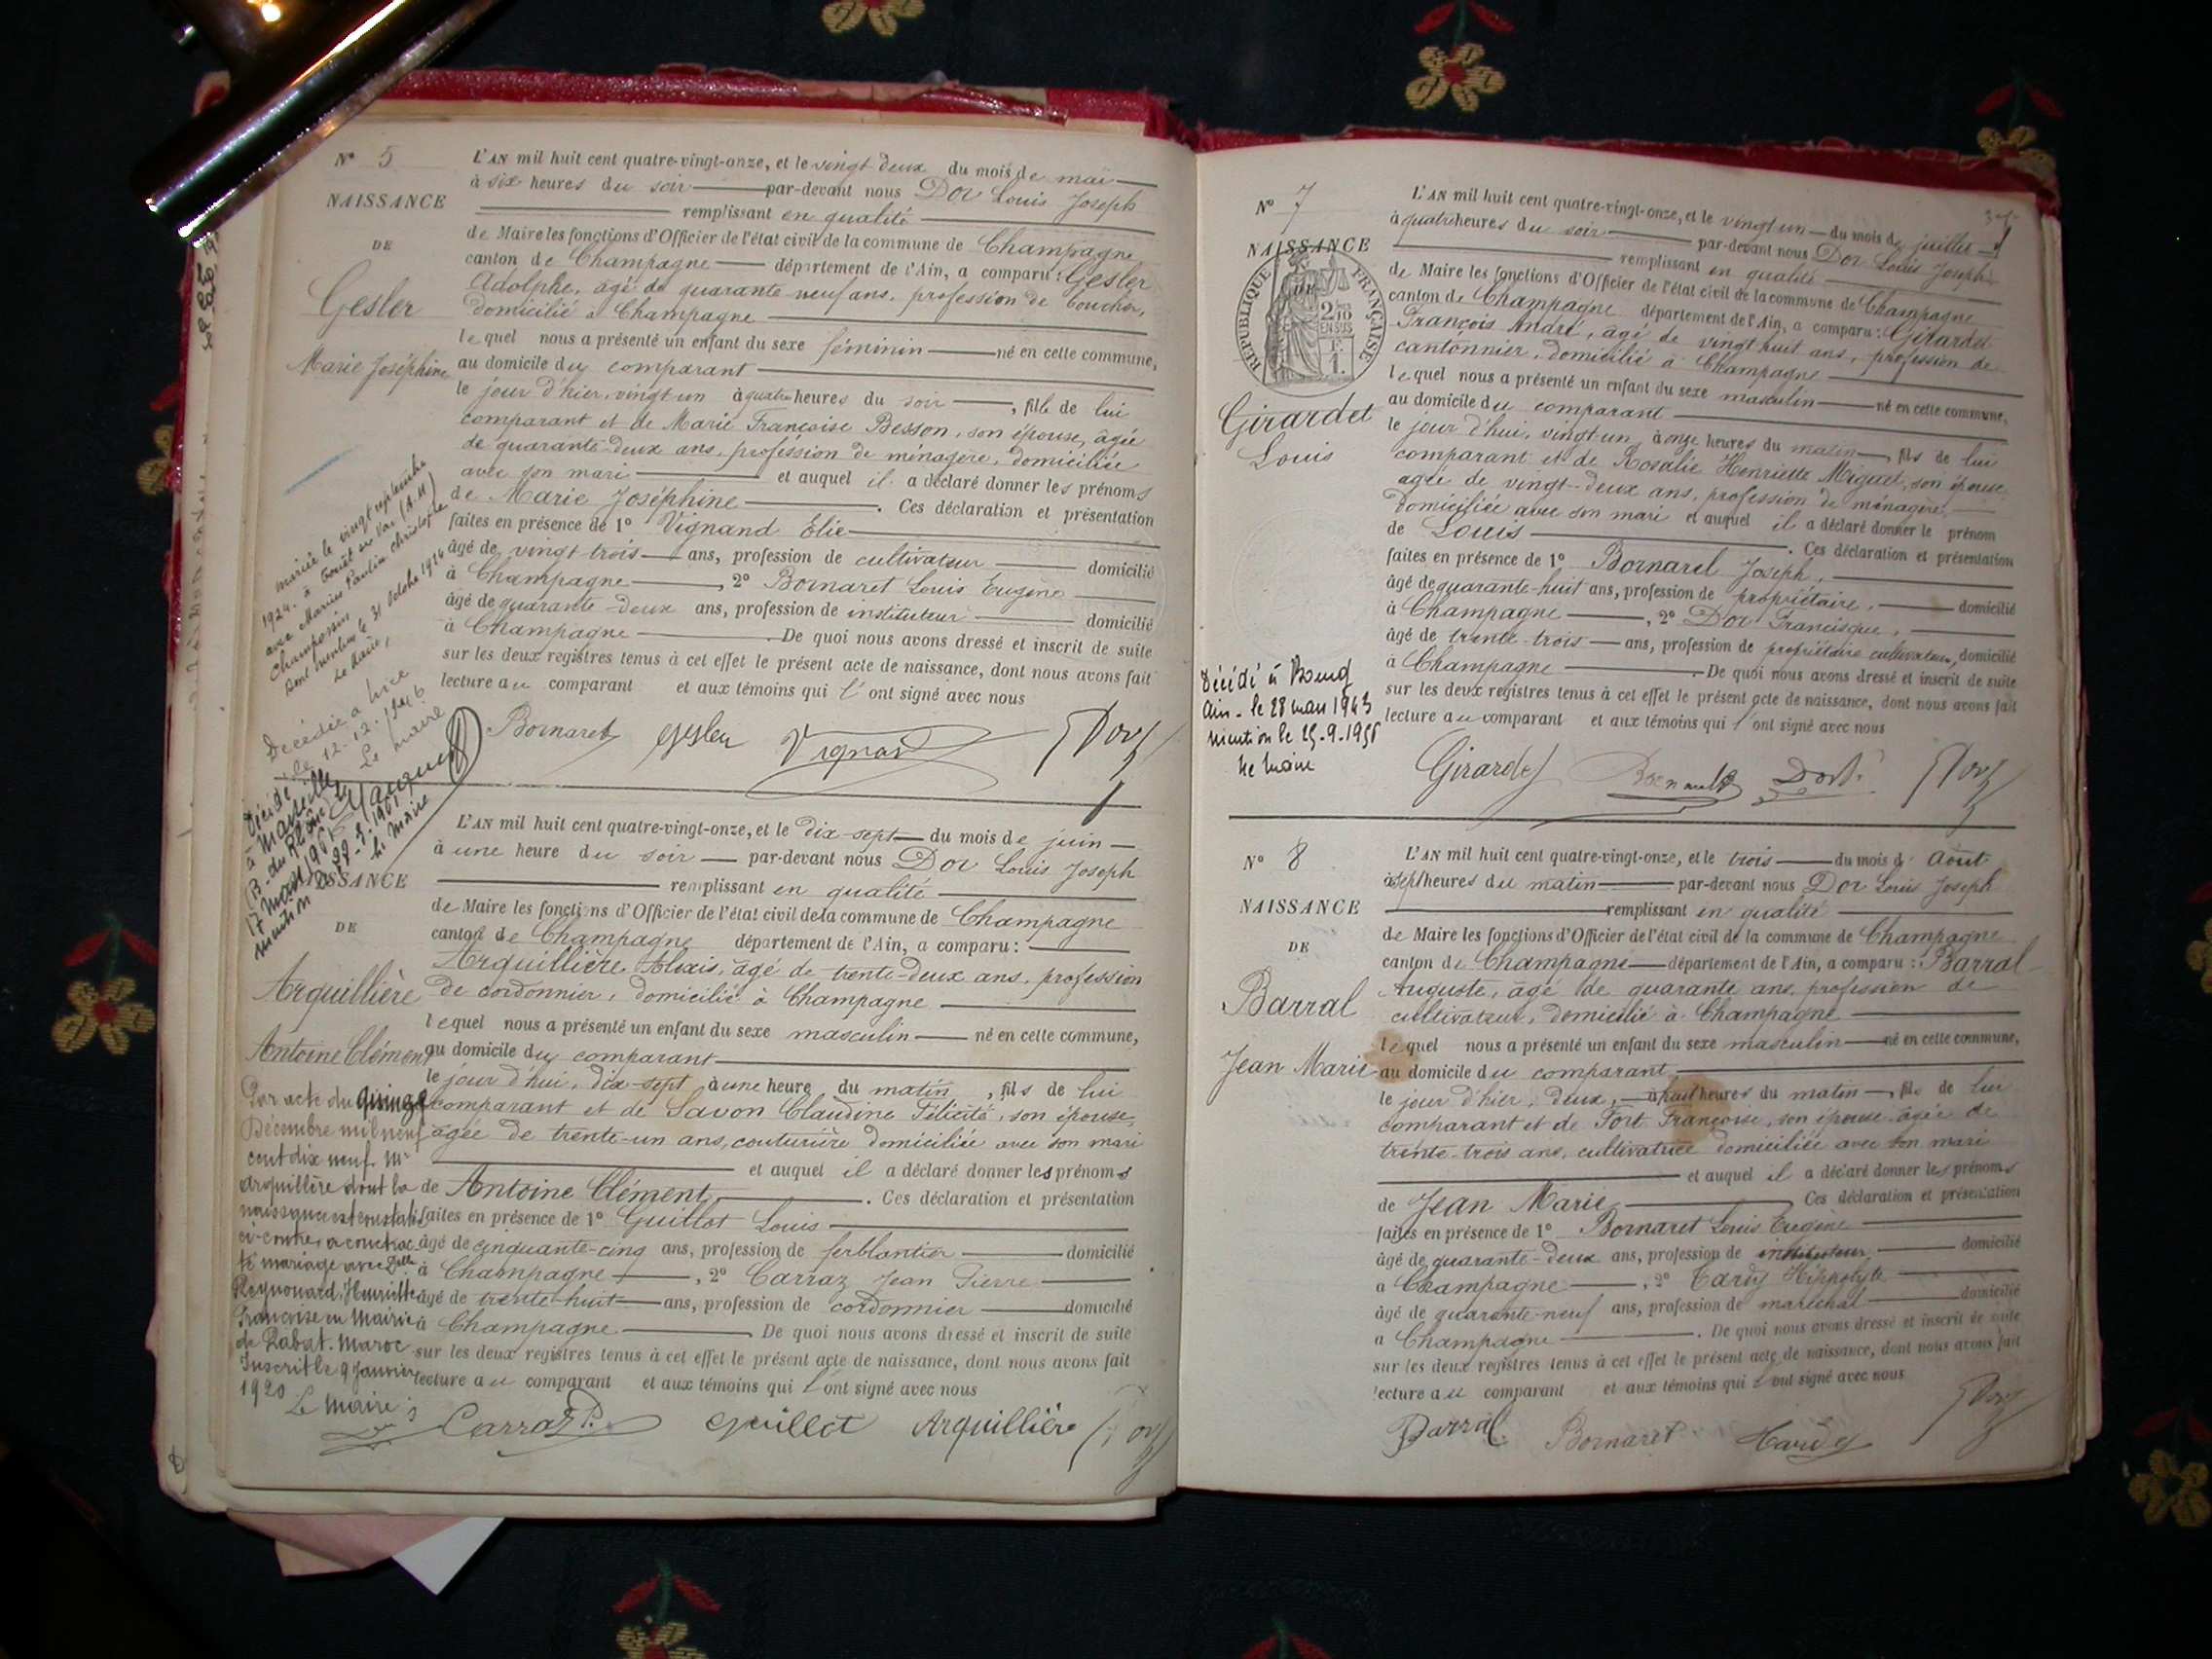 N° 5
NAISSANCE
DE
Gesler
Marie Joséphine
L'AN mil huit cent quatre-vingt-onze, et le vingt deux du mois de mai
à six heures du soir par-devant nous Dor Louis Joseph
remplissant en qualité
de Maire les fonctions d'Officier de l'état civil de la commune de Champagne
canton de Champagne département de l'Ain, a comparu : Gesler
Adolphe, âgé de quarante-neuf ans, profession de boucher,
domicilié à Champagne
lequel nous a présenté un enfant du sexe féminin né en cette commune,
au domicile du comparant
le jour d'hier, vingt-un à quatre heures du soir, fille de lui
comparant et de Marie Françoise Besson, son épouse, âgée
de quarante-deux ans, profession de ménagère, domiciliée
avec son mari et auquel il a déclaré donner les prénoms
de Marie Joséphine. Ces déclaration et présentation
faites en présence de 1° Vignand Elie
âgé de vingt trois ans, profession de cultivateur domicilié
à Champagne, 2° Bornaret Louis Eugène
âgé de quarante-deux ans, profession de instituteur domicilié
à Champagne. De quoi nous avons dressé et inscrit de suite
sur les deux registres tenus à cet effet le présent acte de naissance, dont nous avons fait
lecture au comparant et aux témoins qui l'ont signé avec nous
Bornaret Gesler Vignand Dor
mariée le vingt septembre
1924 à
avec Marius Paulin Christophe
Champossin
dont mention le 31 octobre 1924
Le Maire,
Décédée à Nice
le 12-12-1946
Le maire
Décédé
à Marseille
(B. du Rhône)
17 mars
mention
Le Maire
NAISSANCE
DE
Arquillière
Antoine Clément
L'AN mil huit cent quatre-vingt-onze, et le dix-sept du mois de juin
à une heure du soir par-devant nous Dor Louis Joseph
remplissant en qualité
de Maire les fonctions d'Officier de l'état civil de la commune de Champagne
canton de Champagne département de l'Ain, a comparu :
Arquillière Alexis, âgé de trente-deux ans, profession
de cordonnier, domicilié à Champagne
lequel nous a présenté un enfant du sexe masculin né en cette commune,
au domicile du comparant
le jour d'hui, dix-sept, à une heure du matin, fils de lui
comparant et de Savon Claudine Félicité, son épouse,
âgée de trente-un ans, couturière domiciliée avec son mari
et auquel il a déclaré donner les prénoms
de Antoine Clément. Ces déclaration et présentation
faites en présence de 1° Guillot Louis
âgé de cinquante-cinq ans, profession de ferblantier domicilié
à Champagne, 2° Carraz Jean Pierre
âgé de trente-huit ans, profession de cordonnier domicilié
à Champagne. De quoi nous avons dressé et inscrit de suite
sur les deux registres tenus à cet effet le présent acte de naissance, dont nous avons fait
lecture au comparant et aux témoins qui l'ont signé avec nous
Carraz P. Guillot Arquillière Dor
Par acte du quinze
Décembre mil neuf
cent dix neuf Mr
Arquillère dont la
naissance est constatée
ci-contre, a contrac-
té mariage avec Delle
Reynouard, Henriette
Françoise en Mairie
de Rabat. Maroc
Inscrit le 9 Janvier
1920 Le Maire :
37
N° 7
NAISSANCE
DE
RÉPUBLIQUE FRANÇAISE
2/10 EN SUS
F. 1.
Girardet
Louis
L'AN mil huit cent quatre-vingt-onze, et le vingt un du mois de juillet
à quatre heures du soir par-devant nous Dor Louis Joseph
remplissant en qualité
de Maire les fonctions d'Officier de l'état civil de la commune de Champagne
canton de Champagne département de l'Ain, a comparu : Girardet
François André, âgé de vingt huit ans, profession de
cantonnier, domicilié à Champagne
lequel nous a présenté un enfant du sexe masculin né en cette commune,
au domicile du comparant
le jour d'hui, vingt-un, à onze heures du matin, fils de lui
comparant et de Rosalie Henriette Miguet, son épouse,
agée de vingt-deux ans, profession de ménagère,
domiciliée avec son mari et auquel il a déclaré donner le prénom
de Louis. Ces déclaration et présentation
faites en présence de 1° Bornarel Joseph,
âgé de quarante-huit ans, profession de propriétaire, domicilié
à Champagne, 2° Dor Francisque,
âgé de trente-trois ans, profession de propriétaire cultivateur, domicilié
à Champagne. De quoi nous avons dressé et inscrit de suite
sur les deux registres tenus à cet effet le présent acte de naissance, dont nous avons fait
lecture au comparant et aux témoins qui l'ont signé avec nous
Girardet Dor Dor
Décédé à Bourg
Ain - le 28 mars 1943
Mention le 25-9-1956
Le Maire
N° 8
NAISSANCE
DE
Barral
Jean Marie
L'AN mil huit cent quatre-vingt-onze, et le trois du mois d'Août
à sept heures du matin par-devant nous Dor Louis Joseph
remplissant en qualité
de Maire les fonctions d'Officier de l'état civil de la commune de Champagne
canton de Champagne département de l'Ain, a comparu : Barral
Auguste, âgé de quarante ans, profession de
cultivateur, domicilié à Champagne
lequel nous a présenté un enfant du sexe masculin né en cette commune,
au domicile du comparant
le jour d'hier, deux, à huit heures du matin, fils de lui
comparant et de Fort Françoise, son épouse, âgée de
trente-trois ans, cultivatrice domiciliée avec son mari
et auquel il a déclaré donner les prénoms
de Jean Marie. Ces déclaration et présentation
faites en présence de 1° Bornaret Louis Eugène
âgé de quarante-deux ans, profession de instituteur domicilié
à Champagne, 2° Tardy Hippolyte
âgé de quarante-neuf ans, profession de maréchal domicilié
à Champagne. De quoi nous avons dressé et inscrit de suite
sur les deux registres tenus à cet effet le présent acte de naissance, dont nous avons fait
lecture au comparant et aux témoins qui l'ont signé avec nous
Barral Bornaret Tardy Dor